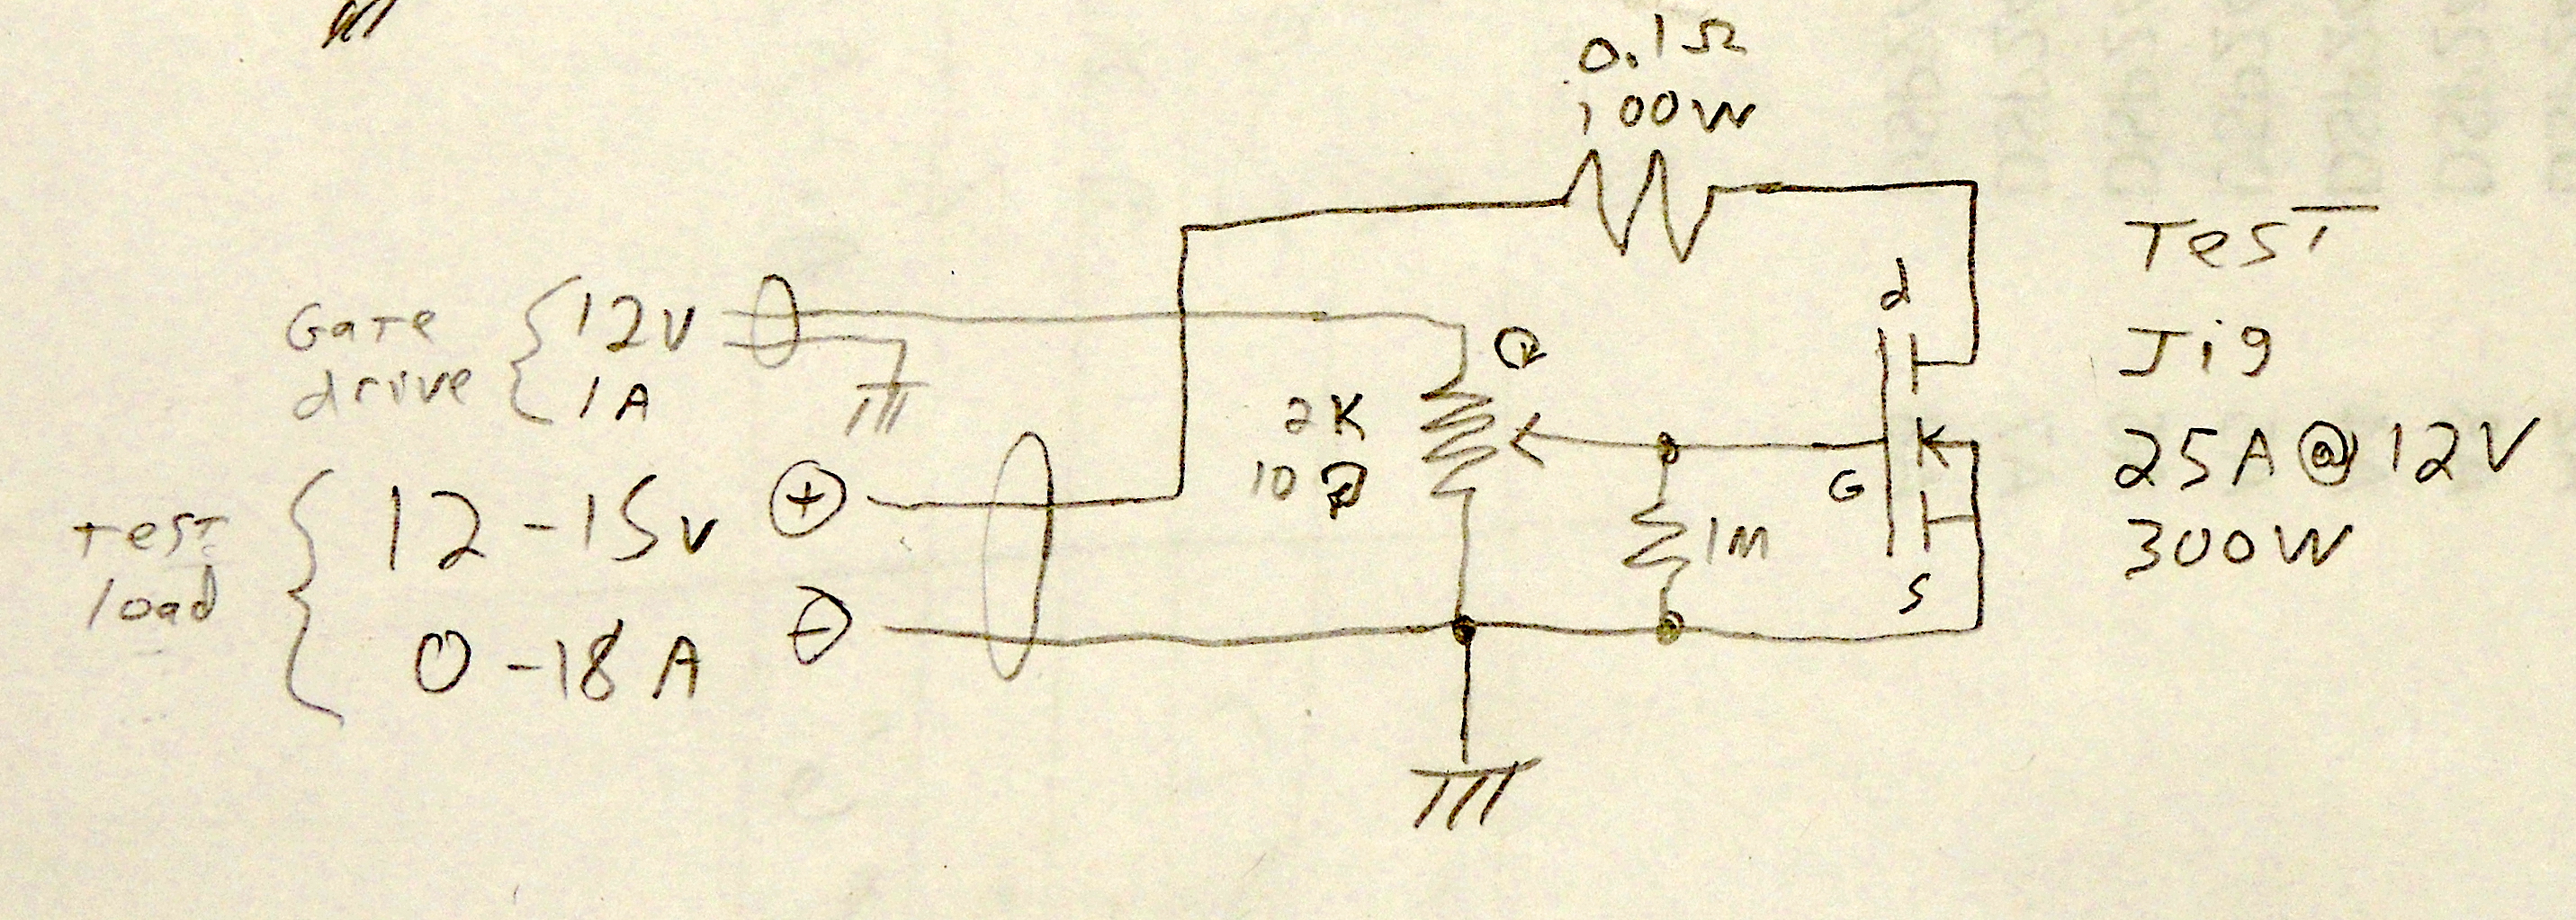 0.1Ω
100W
Gate
drive
12V
1A
Test
load
12-15v
0-18A
+
-
2K
10
d
G
S
1M
Test
Jig
25A@12V
300W